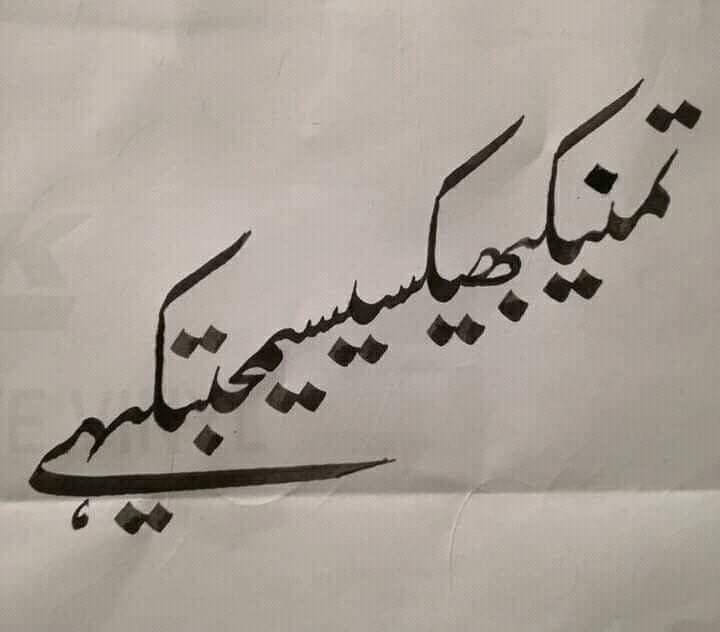 تمنیکبھیکسیسیمحبتکیہے